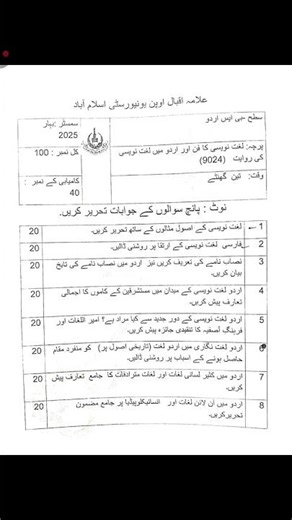 علامہ اقبال اوپن یونیورسٹی اسلام آباد
سطح -بی ایس اردو
سمسٹر :بہار
2025
پرچہ: لغت نویسی کا فن اور اردو میں لغت نویسی
کی روایت (9024)
کل نمبر : 100
وقت: تین گھنٹے
کامیابی کے نمبر :
40
نوٹ : پانچ سوالوں کے جوابات تحریر کریں۔
1 لغت نویسی کے اصول مثالوں کے ساتھ تحریر کریں۔ 20
2 فارسی لغت نویسی کے ارتقا پر روشنی ڈالیں۔ 20
3 نصاب نامے کی تعریف کریں نیز اردو میں نصاب نامے کی تایخ
بیان کریں۔ 20
4 اردو لغت نویسی کے میدان میں مستشرقین کے کاموں کا اجمالی
تعارف پیش کریں۔ 20
5 اردو لغت نویسی کے دور جدید سے کیا مراد ہے؟ امیر اللغات اور
فرہنگ آصفیہ کا تنقیدی جائزہ پیش کریں۔ 20
اردو لغت نگاری میں اردو لغت (تاریخی اصول پر) کو منفرد مقام
حاصل ہونے کے اسباب پر روشنی ڈالیں۔ 20
7 اردو میں کثیر لسانی لغات اور لغات مترادفات کا جامع تعارف پیش
کریں۔ 20
8 اردو میں آن لائن لغات اور انسائیکلوپیڈیا پر جامع مضمون
تحریرکریں۔ 20